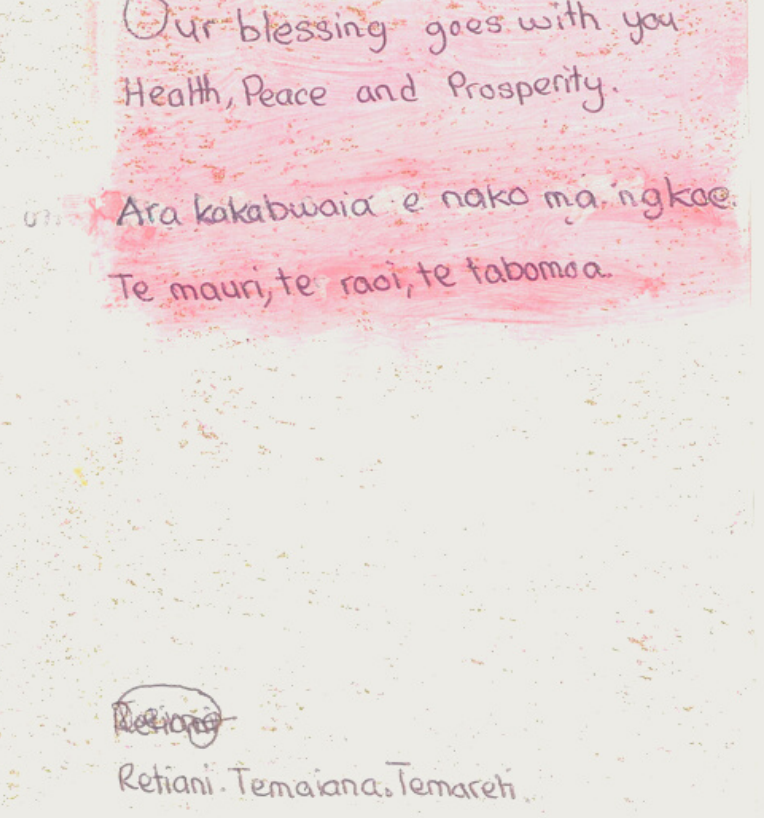 Our blessing goes with you
Health, Peace and Prosperity.
Ara kakabwaia e nako ma ngkoe.
Te mauri, te raoi, te tabomoa.
Retiani. Temaiana. Temareti.